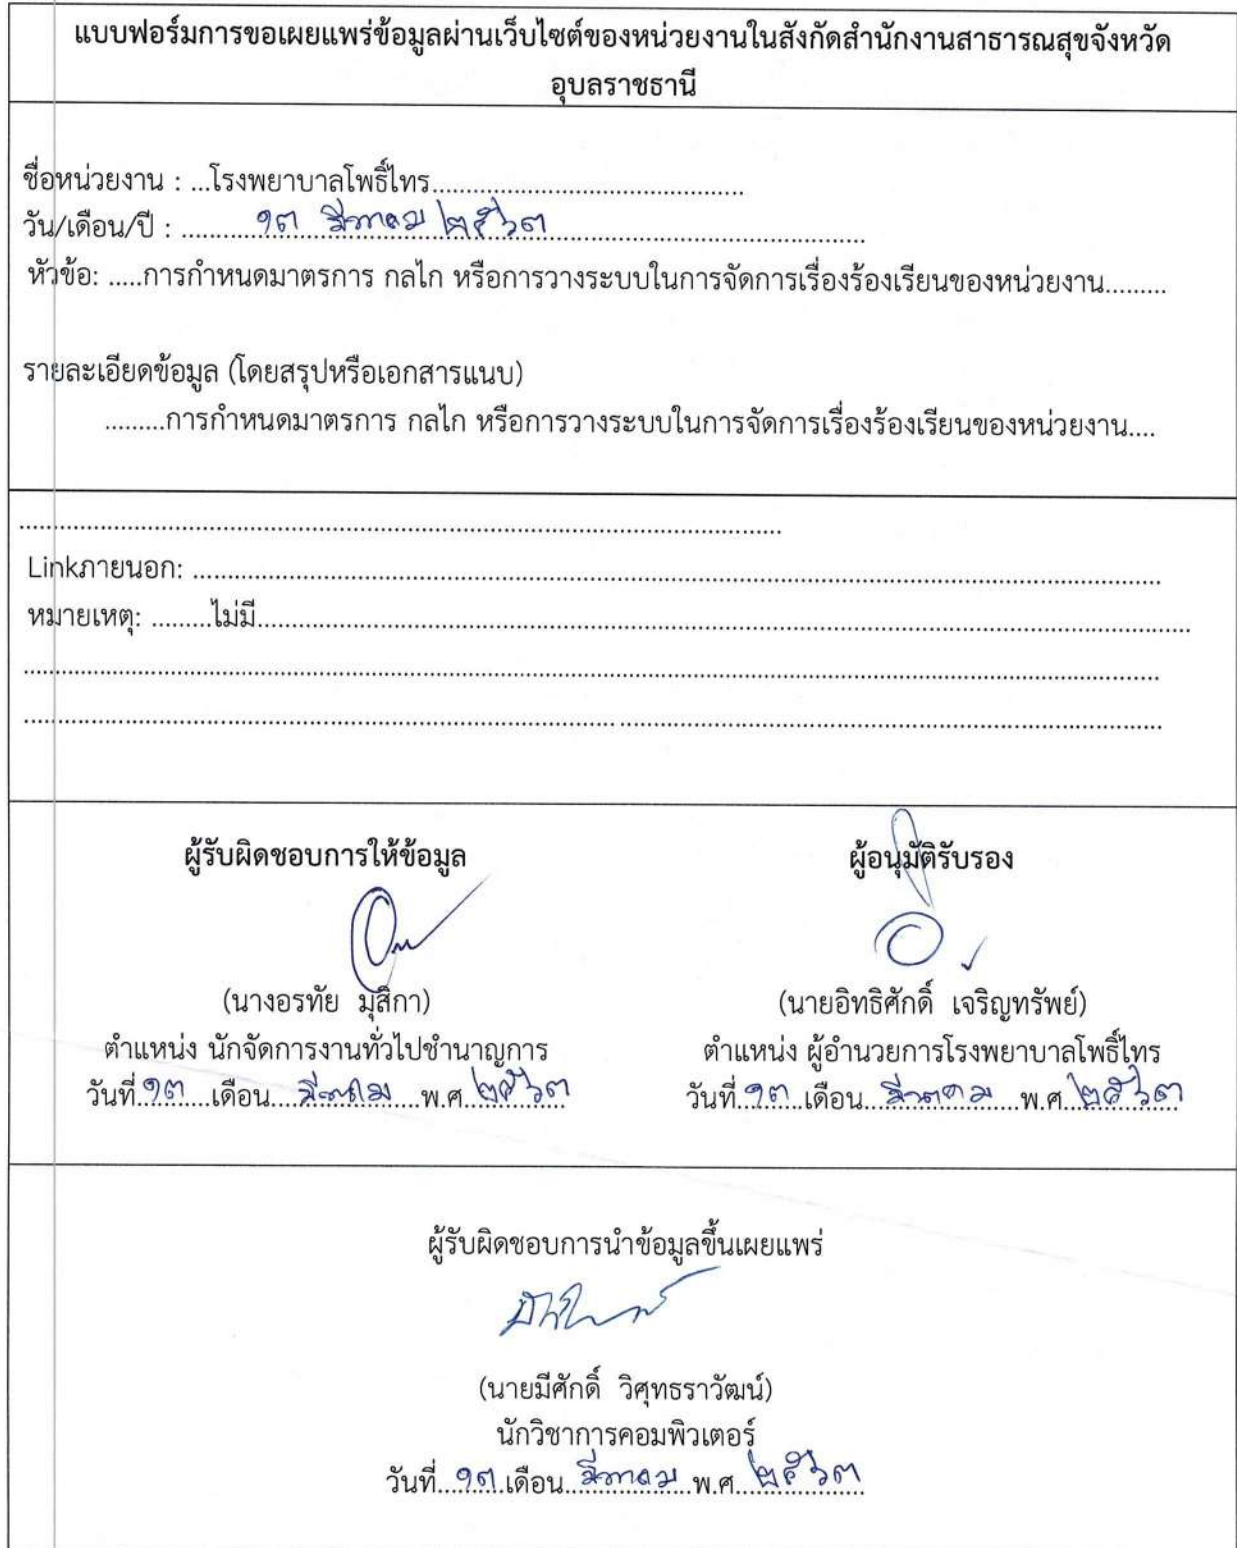 แบบฟอร์มการขอเผยแพร่ข้อมูลผ่านเว็บไซต์ของหน่วยงานในสังกัดสำนักงานสาธารณสุขจังหวัด
อุบลราชธานี
ชื่อหน่วยงาน : ...โรงพยาบาลโพธิ์ไทร..............................................
วัน/เดือน/ปี : ...........๑๓ มีนาคม ๒๕๖๓...............................................
หัวข้อ: .....การกำหนดมาตรการ กลไก หรือการวางระบบในการจัดการเรื่องร้องเรียนของหน่วยงาน.........
รายละเอียดข้อมูล (โดยสรุปหรือเอกสารแนบ)
.........การกำหนดมาตรการ กลไก หรือการวางระบบในการจัดการเรื่องร้องเรียนของหน่วยงาน....
Linkภายนอก: ................................................................................
หมายเหตุ: .........ไม่มี................................................................................
ผู้รับผิดชอบการให้ข้อมูล ผู้อนุมัติรับรอง
(นางอรทัย มุสิกา) (นายอิทธิศักดิ์ เจริญทรัพย์)
ตำแหน่ง นักจัดการงานทั่วไปชำนาญการ ตำแหน่ง ผู้อำนวยการโรงพยาบาลโพธิ์ไทร
วันที่.๑๓.....เดือน....มีนาคม....พ.ศ.๒๕๖๓ วันที่..๑๓...เดือน...มีนาคม....พ.ศ.๒๕๖๓
ผู้รับผิดชอบการนำข้อมูลขึ้นเผยแพร่
(นายมีศักดิ์ วิศุทธราวัฒน์)
นักวิชาการคอมพิวเตอร์
วันที่...๑๓..เดือน..มีนาคม..พ.ศ...๒๕๖๓